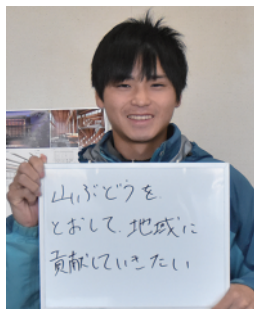 山ぶどうを
とおして、地域に
貢献していきたい